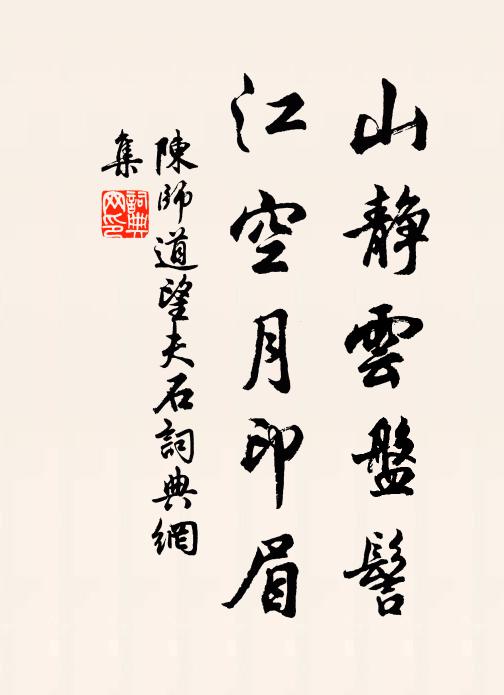 山靜雲盤髻
江空月印眉
陳師道望夫石詞典網
集
詞典
网印